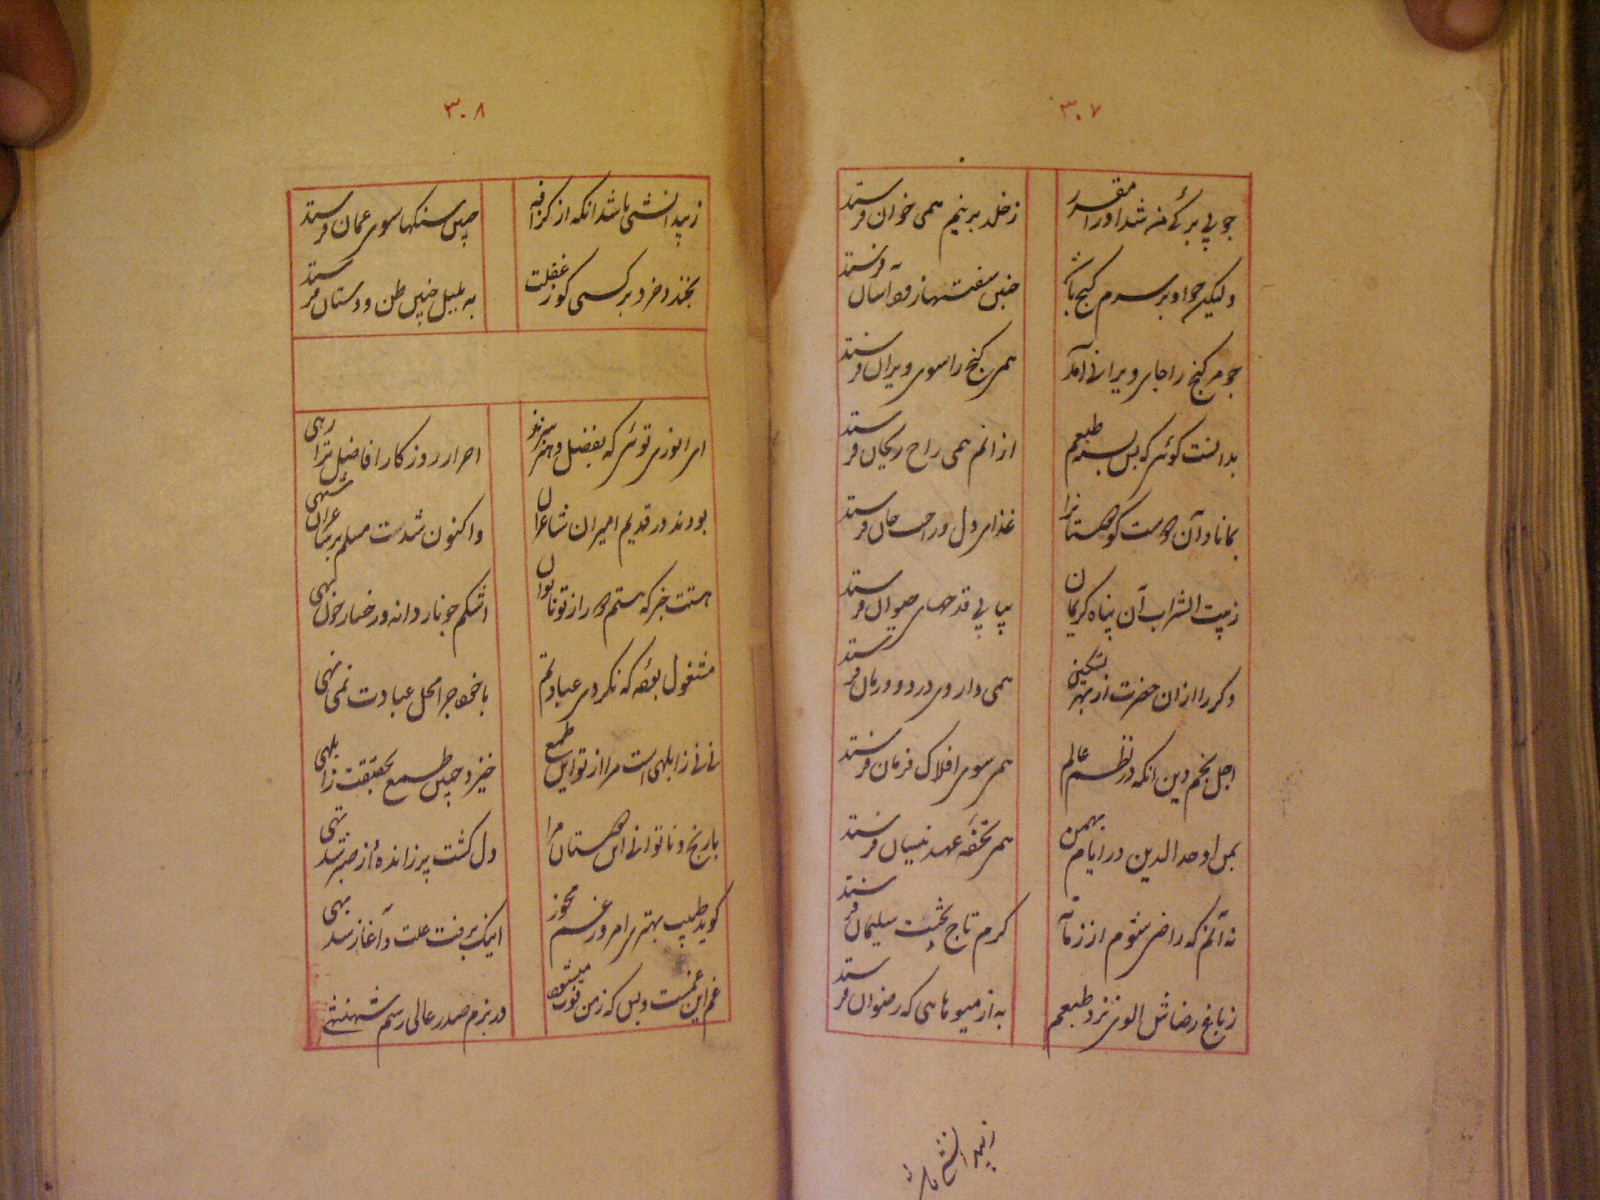 ۳۰۷
چو بی برگئ منه شد او را مقرر
ز خلد برینم همی خوان فرستد
ولیکن چو او بر سرم گنج باشد
چنین سفتنها ز فرقدان فرستد
چو مر گنج را جای ویرانی آمد
همی گنج را سوی ویران فرستد
بدانست کوئی که بس بسته طبعم
از آنم همی راح ریحان فرستد
بماناد آن دوست کو دوستانرا
غذای دل و راحت جان فرستد
ز بیت الشراب آن پناه کریمان
پیاپی قدحهای حیوان فرستد
وکر را از آن حضرت از بهر تسکین
همی داروی درد و درمان فرستد
اجل نجم دین آنکه در نظم عالم
همی سوی افلاک فرمان فرستد
بمن اوحد الدین در ایام بهمن
همی تحفهٔ عهد نیسان فرستد
نه آنم که راضی شوم از زمانه
کرم تاج و تخت سلیمان فرستد
ز باغ رضاش انوری نزد طبعم
به از میوهاهی که رضوان فرستد
زبید انشی باشد
۳۰۸
زبید انشی باشد آنکه از گزافه
چنین سنگها سوی عمان فرستد
بخندد خرد بر کسی کو ز غفلت
به بلبل چنین طن و دستان فرستد
ای انوری توئی که بفضل و هنر سزند
احرار روزگار افاضل ترا رهی
بودند در قدیم امیران شاعران
و اکنون شدست مسلم بر شاعران شهی
هستت خبر که هستم دور از تو ناتوان
اشکم چو ناردانه و رخسار چون بهی
مشغول بوئه که نکردی عیادتم
با خواجرا محل عیادت نمی نهی
نی نی ز ابلهی است مرا از تو این طمع
خیزد چنین طمع بحقیقت ز ابلهی
با رنج و ناتوانی این دوستان مرا
دل گشت پر ز انده و از صبر شد تهی
گوید طبیب بهتری امروز غم مخور
اینک برفت علت و آغاز شد بهی
غم این غمست و بس که ز من فوت میشود
در بزم صدر عالی رسم شهنشهی